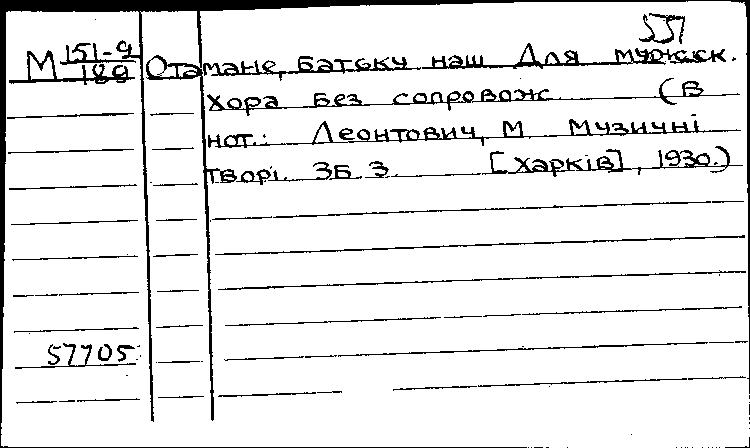 551
М 151-9/188 Отамане, батьку наш Для мужск.
хора без сопровож. (В
нот.: Леонтович, М. Музичні
творі. Зб. 3. [Харків], 1930.)
57705